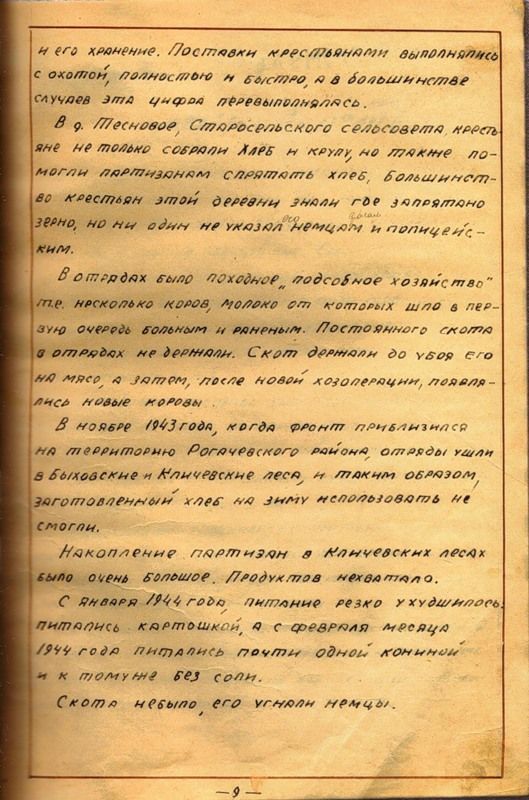 и его хранение. Поставки крестьянами выполнялись
с охотой, полностью и быстро, а в большинстве
случаев эта цифра перевыполнялась.
В д. Тесновое, Старосельского сельсовета, кресть-
яне не только собрали хлеб и крупу, но также по-
могли партизанам спрятать хлеб, большинст-
во крестьян этой деревни знали где запрятано
зерно, но ни один не указал его немцам и полицейс-
ким.
В отрядах было походное „подсобное хозяйство"
т.е. несколько коров, молоко от которых шло в пер-
вую очередь больным и раненым. Постоянного скота
в отрядах не держали. Скот держали до убоя его
на мясо, а затем, после новой хозоперации, появля-
лись новые коровы.
В ноябре 1943 года, когда фронт приблизился
на территорию Рогачевского района, отряды ушли
в Быховские и Кличевские леса, и таким образом,
заготовленный хлеб на зиму использовать не
смогли.
Накопление партизан в Кличевских лесах
было очень большое. Продуктов нехватало.
С января 1944 года, питание резко ухудшилось.
питались картошкой, а с февраля месяца
1944 года питались почти одной кониной
и к тому же без соли.
Скота небыло, его угнали немцы.
— 9 —